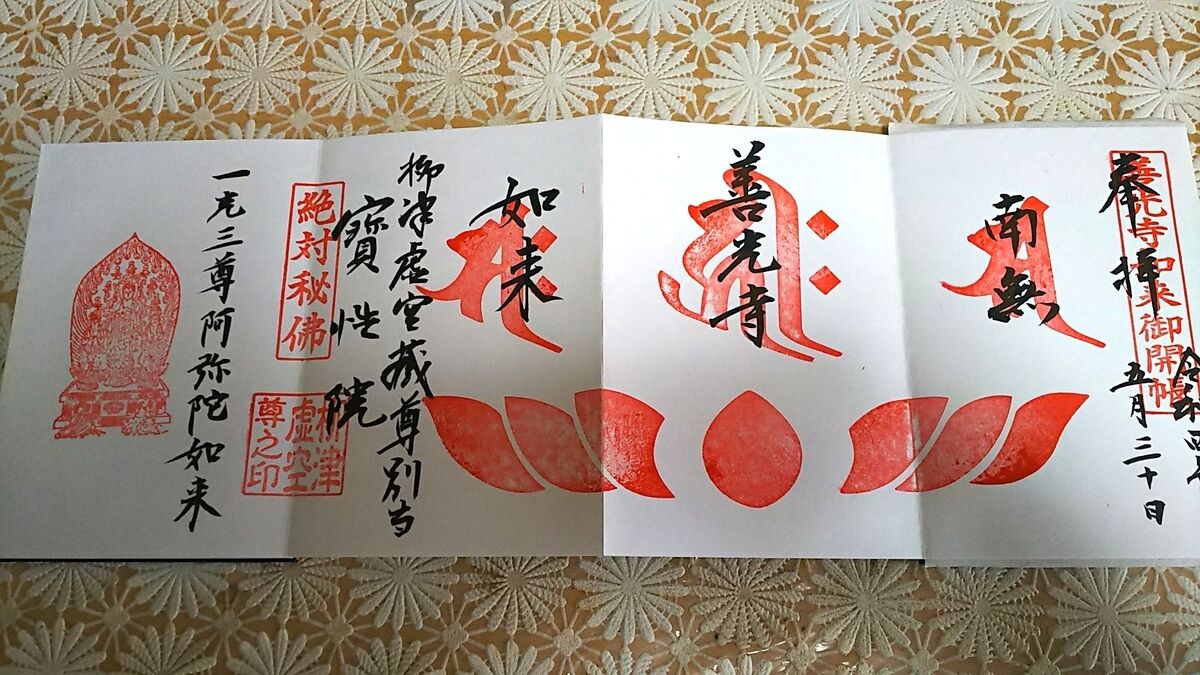 奉拝
善光寺如来御開帳
令和四年
五月三十日
南無
善光寺
如来
柳津虚空蔵尊別当
寶性院
絶対秘佛
柳津
虚空
尊之印
一光三尊阿弥陀如来